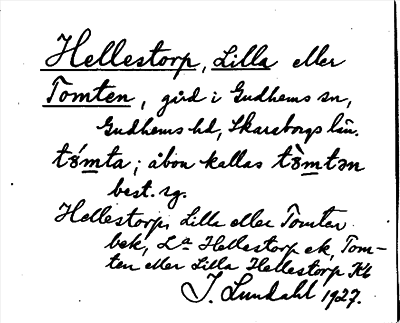 Hellestorp, Lilla eller
Tomten, gård i Gudhems sn,
Gudhems hd, Skaraborgs län.
tɜ́mta; åbon kallas tɜ̀mtən
best. sg.
Hellestorp, Lilla eller Tomten
bek, La Hellestorp ek, Tom-
ten eller Lilla Hellestorp Kb
J. Lundahl 1927.